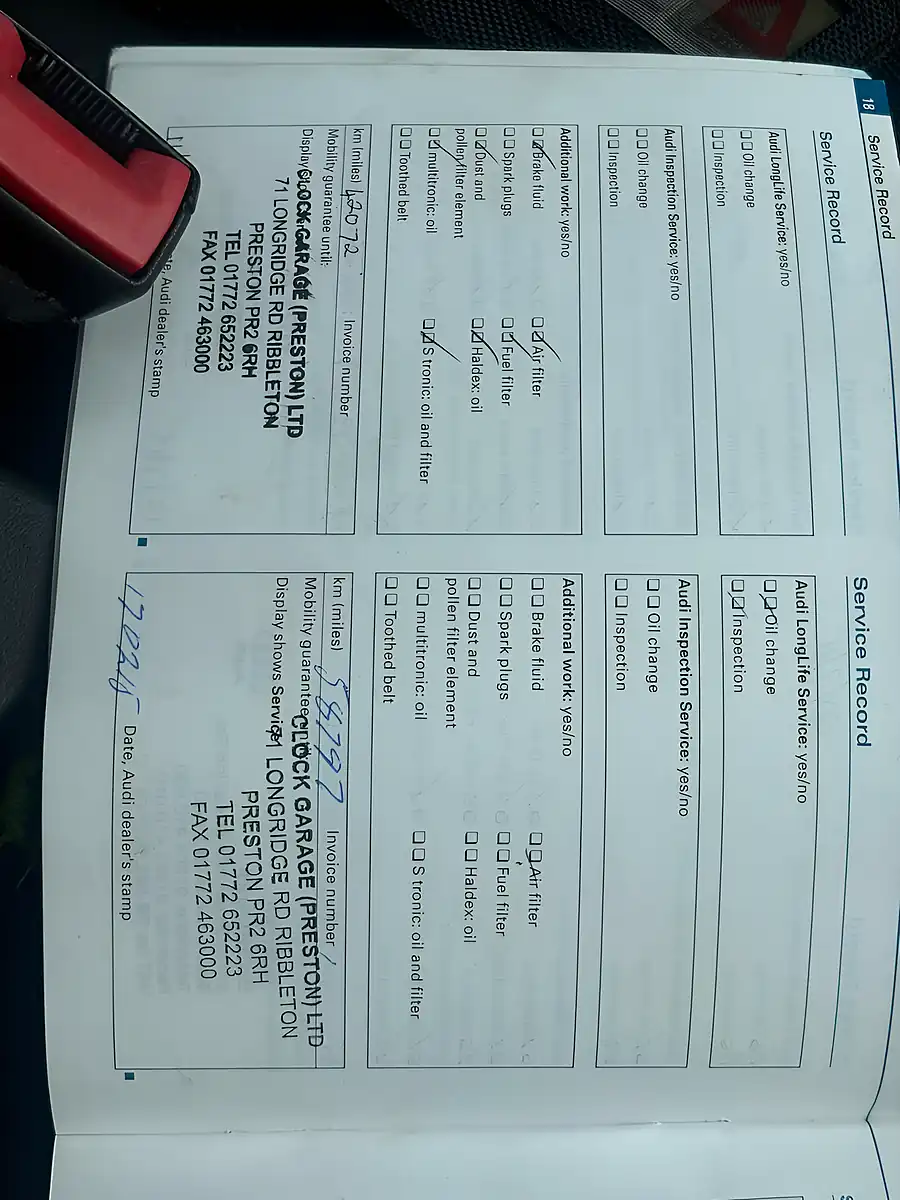 18
Service Record
Service Record
Audi LongLife Service: yes/no
Oil change
Inspection
Audi Inspection Service: yes/no
Oil change
Inspection
Additional work: yes/no
Brake fluid Air filter
Spark plugs Fuel filter
Dust and Haldex: oil
pollen filter element
multitronic: oil S tronic: oil and filter
Toothed belt
km (miles) 42072 Invoice number
Mobility guarantee until:
Display
CLOCK GARAGE (PRESTON) LTD
71 LONGRIDGE RD RIBBLETON
PRESTON PR2 6RH
TEL 01772 652223
FAX 01772 463000
Audi dealer's stamp
Service Record
Audi LongLife Service: yes/no
Oil change
Inspection
Audi Inspection Service: yes/no
Oil change
Inspection
Additional work: yes/no
Brake fluid Air filter
Spark plugs Fuel filter
Dust and Haldex: oil
pollen filter element
multitronic: oil S tronic: oil and filter
Toothed belt
km (miles) 58797 Invoice number
Mobility guarantee
Display shows Service
CLOCK GARAGE (PRESTON) LTD
71 LONGRIDGE RD RIBBLETON
PRESTON PR2 6RH
TEL 01772 652223
FAX 01772 463000
Date, Audi dealer's stamp